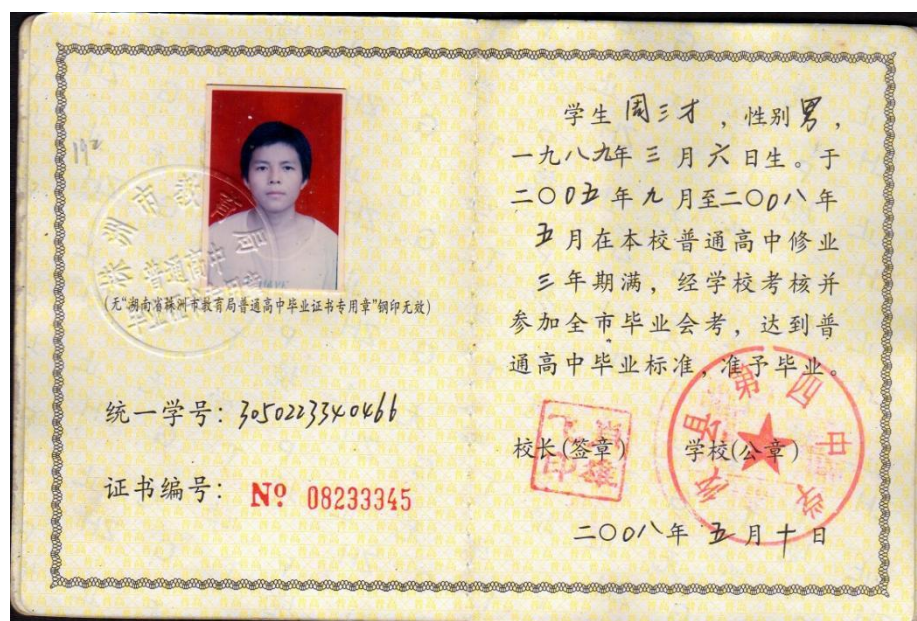 (无“湖南省株洲市教育局普通高中毕业证书专用章”钢印无效)
统一学号：3050223340466
证书编号：
Nº 08233345
学生周三才，性别男，
一九八九年三月六日生。于
二〇05年九月至二〇0八年
五月在本校普通高中修业
三年期满，经学校考核并
参加全市毕业会考，达到普
通高中毕业标准，准予毕业。
校长(签章) 学校(公章)
县第四中学
二〇〇八年五月十日